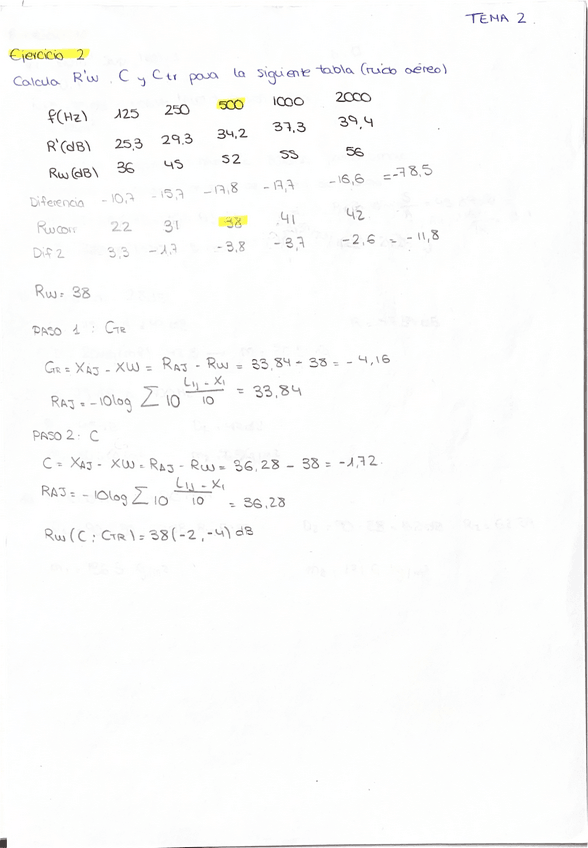 TEMA 2.
Ejercicio 2
Calcula R'w, C y Ctr para la siguiente tabla (ruido aéreo)
f(Hz) 125 250 500 1000 2000
R'(dB) 25,3 29,3 34,2 37,3 39,4
Rw(dB) 36 45 52 55 56
Diferencia -10,7 -15,7 -17,8 -17,7 -16,6 = -78,5
Rwcorr 22 31 38 41 42
Dif 2 3,3 -1,7 -3,8 -3,7 -2,6 = -11,8
Rw = 38
PASO 1 : CTR
CTR = XAJ - XW = RAJ - RW = 33,84 - 38 = -4,16
RAJ = -10log ∑ 10 Lij - Xi / 10 = 33,84
PASO 2 : C
C = XAJ - XW = RAJ - RW = 36,28 - 38 = -1,72
RAJ = -10log ∑ 10 Lij - Xi / 10 = 36,28
Rw (C ; CTR) = 38 (-2, -4) dB